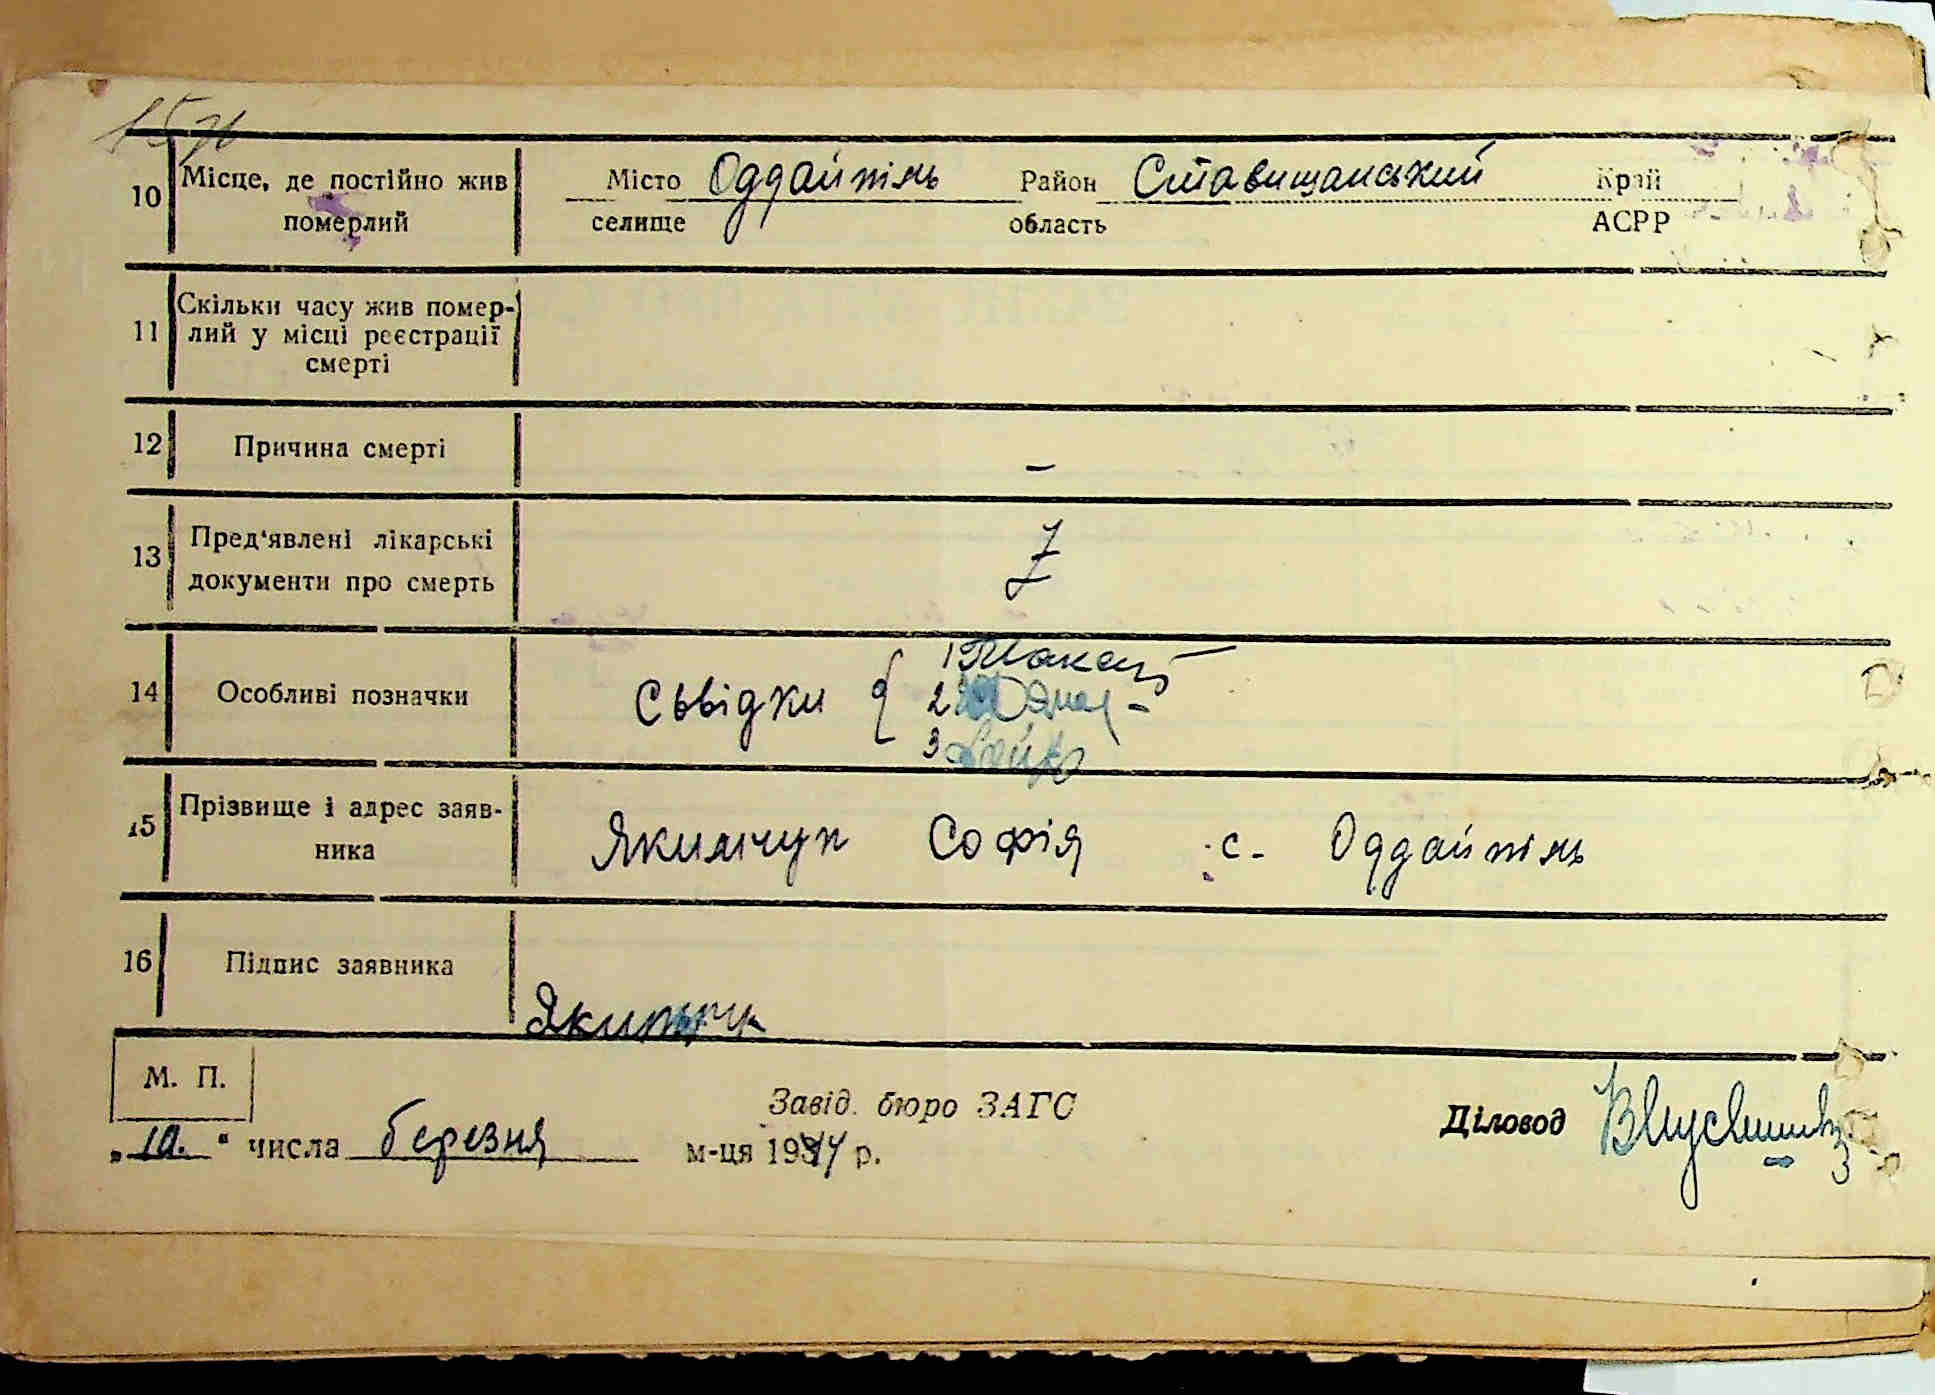 10 Місце, де постійно жив Місто Оддайпіль Район Ставищанський Край
померлий селище область АСРР
11 Скільки часу жив помер-
лий у місці реєстрації
смерті
12 Причина смерті –
13 Пред'явлені лікарські
документи про смерть
14 Особливі позначки Сьвідки { 1
2
3
15 Прізвище і адрес заяв-
ника Якимчук Софія с. Оддайпіль
16 Підпис заявника Якимчук
М. П.
Завід. бюро ЗАГС Діловод
„10." числа березня м-ця 1944 р.